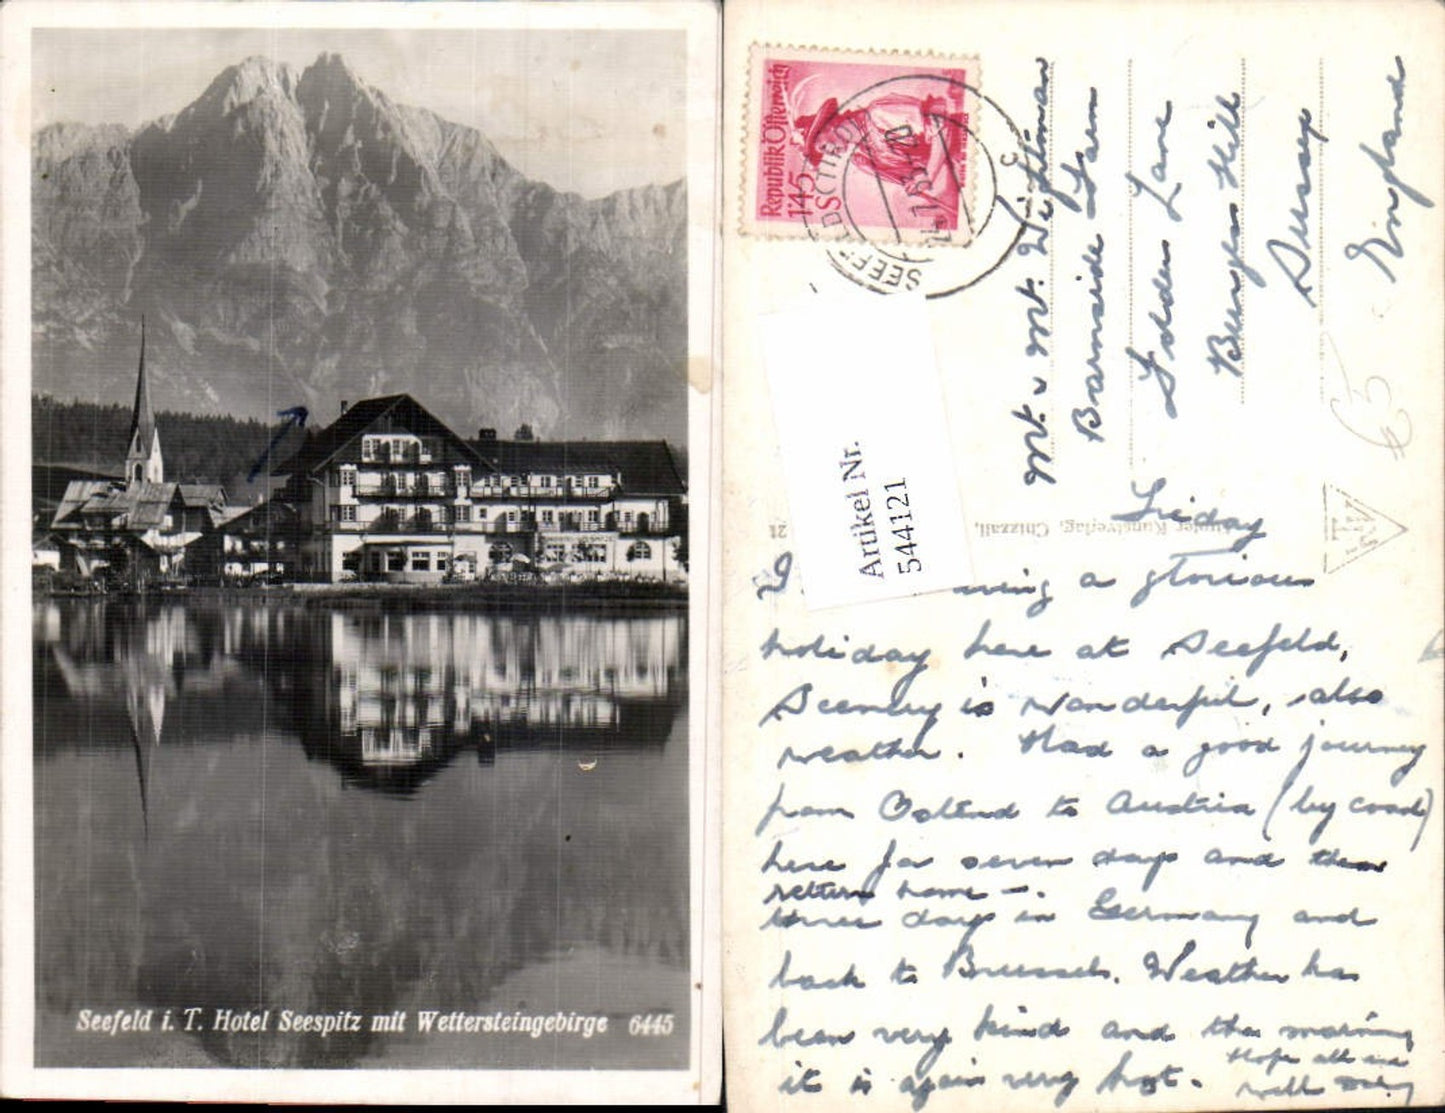 Seefeld i. T. Hotel Seespitz mit Wettersteingebirge 6445
Republik Österreich
1'45 S
SEEFELD
Artikel Nr.
544121
Barnside Farm
Folders Lane
Burgess Hill
Sussex
England
65
Friday
I a glorious
holiday here at Seefeld,
Scenery is wonderful, also
weather. Had a good journey
from Ostend to Austria (by coach)
here for seven days and then
return home -.
three days in Germany and
back to Brussels. Weather has
been very kind and this morning
it is again very hot.
Hope all are
well